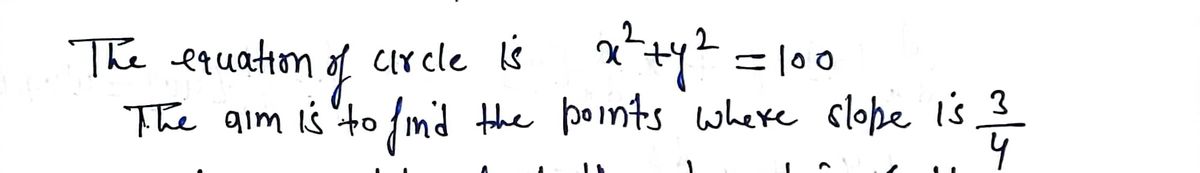 The equation of circle is x²+y² = 100
The aim is to find the points where slope is 3/4